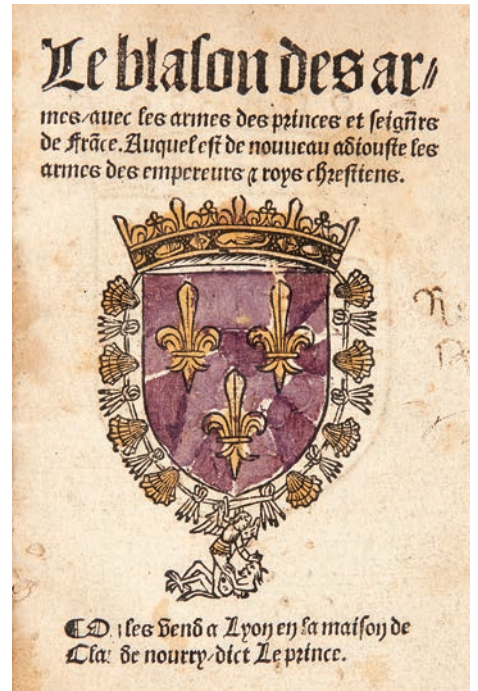 Le blaſon des ar//
mes/auec les armes des princes et ſeign̄rs
de frāce. Auquel eſt de nouueau adiouſte les
armes des empereurs ⁊ roys chreſtiens.
¶ les vend a Lyon en la maiſon de
de nourry/dict Le prince.